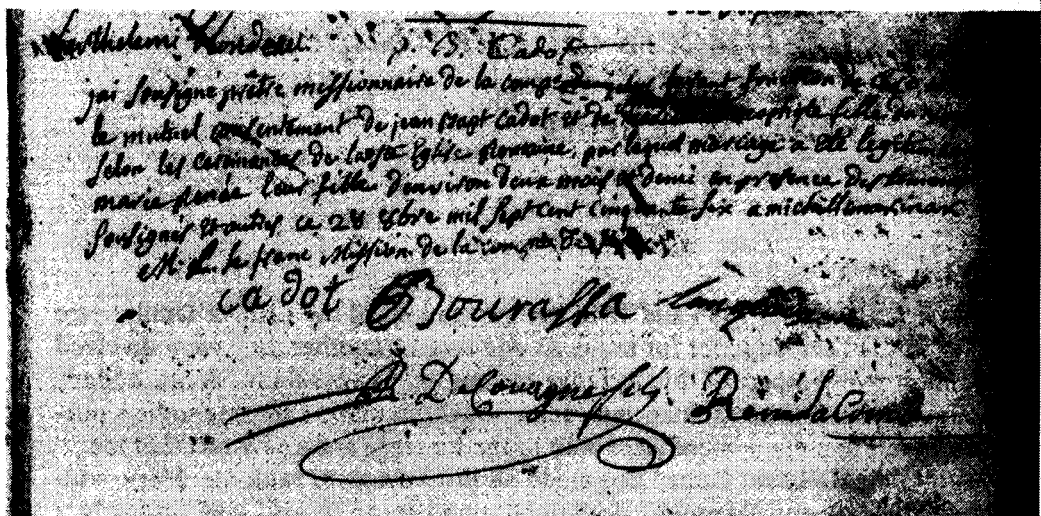 Barthelemi Blondeau. J. B. Cadot
jai Soussigné prêtre missionnaire de la comp de jesus faisant fonction de curé
le mutuel consentement de jean bapt cadot et de fille du
selon les ceremonies de la ste Eglise Romaine, par lequel mariage a été legitimée
marie renée leur fille d'environ deux mois et demi en presence des temoins
Soussignés et autres ce 28 8bre mil Sept Cent Cinquante Six a michillimakinac
M. L. le franc Mission. de la comp. de
cadot Bourassa Langlade
R DeCouagne fils. René LaComb